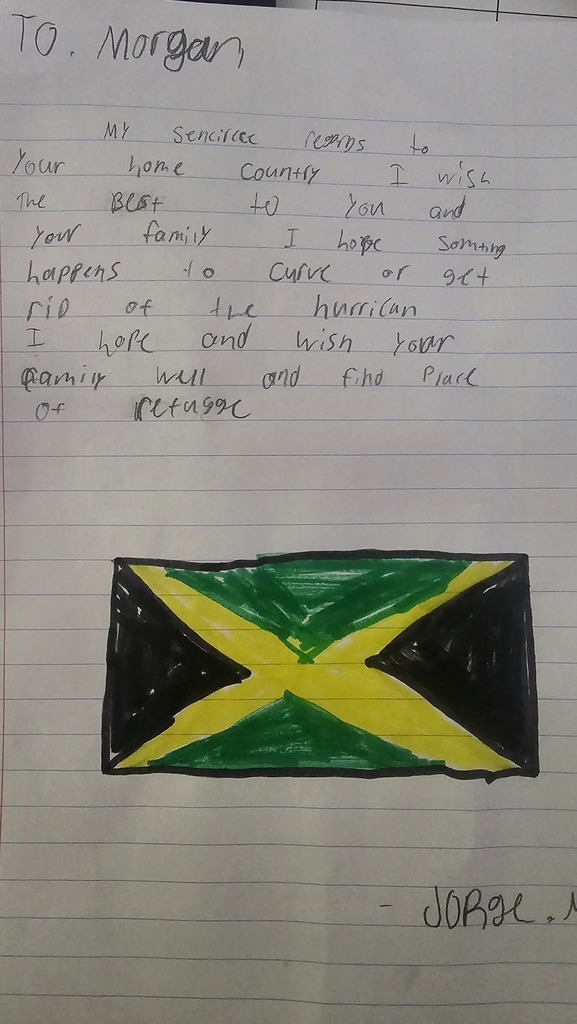 TO. Morgan
MY Sencircee regards to
Your home Country I wish
The Best to you and
Your family I hope Somting
happens to Curve or get
rid of the hurrican
I hope and wish your
family well and find Place
of refugge
- JORge. M